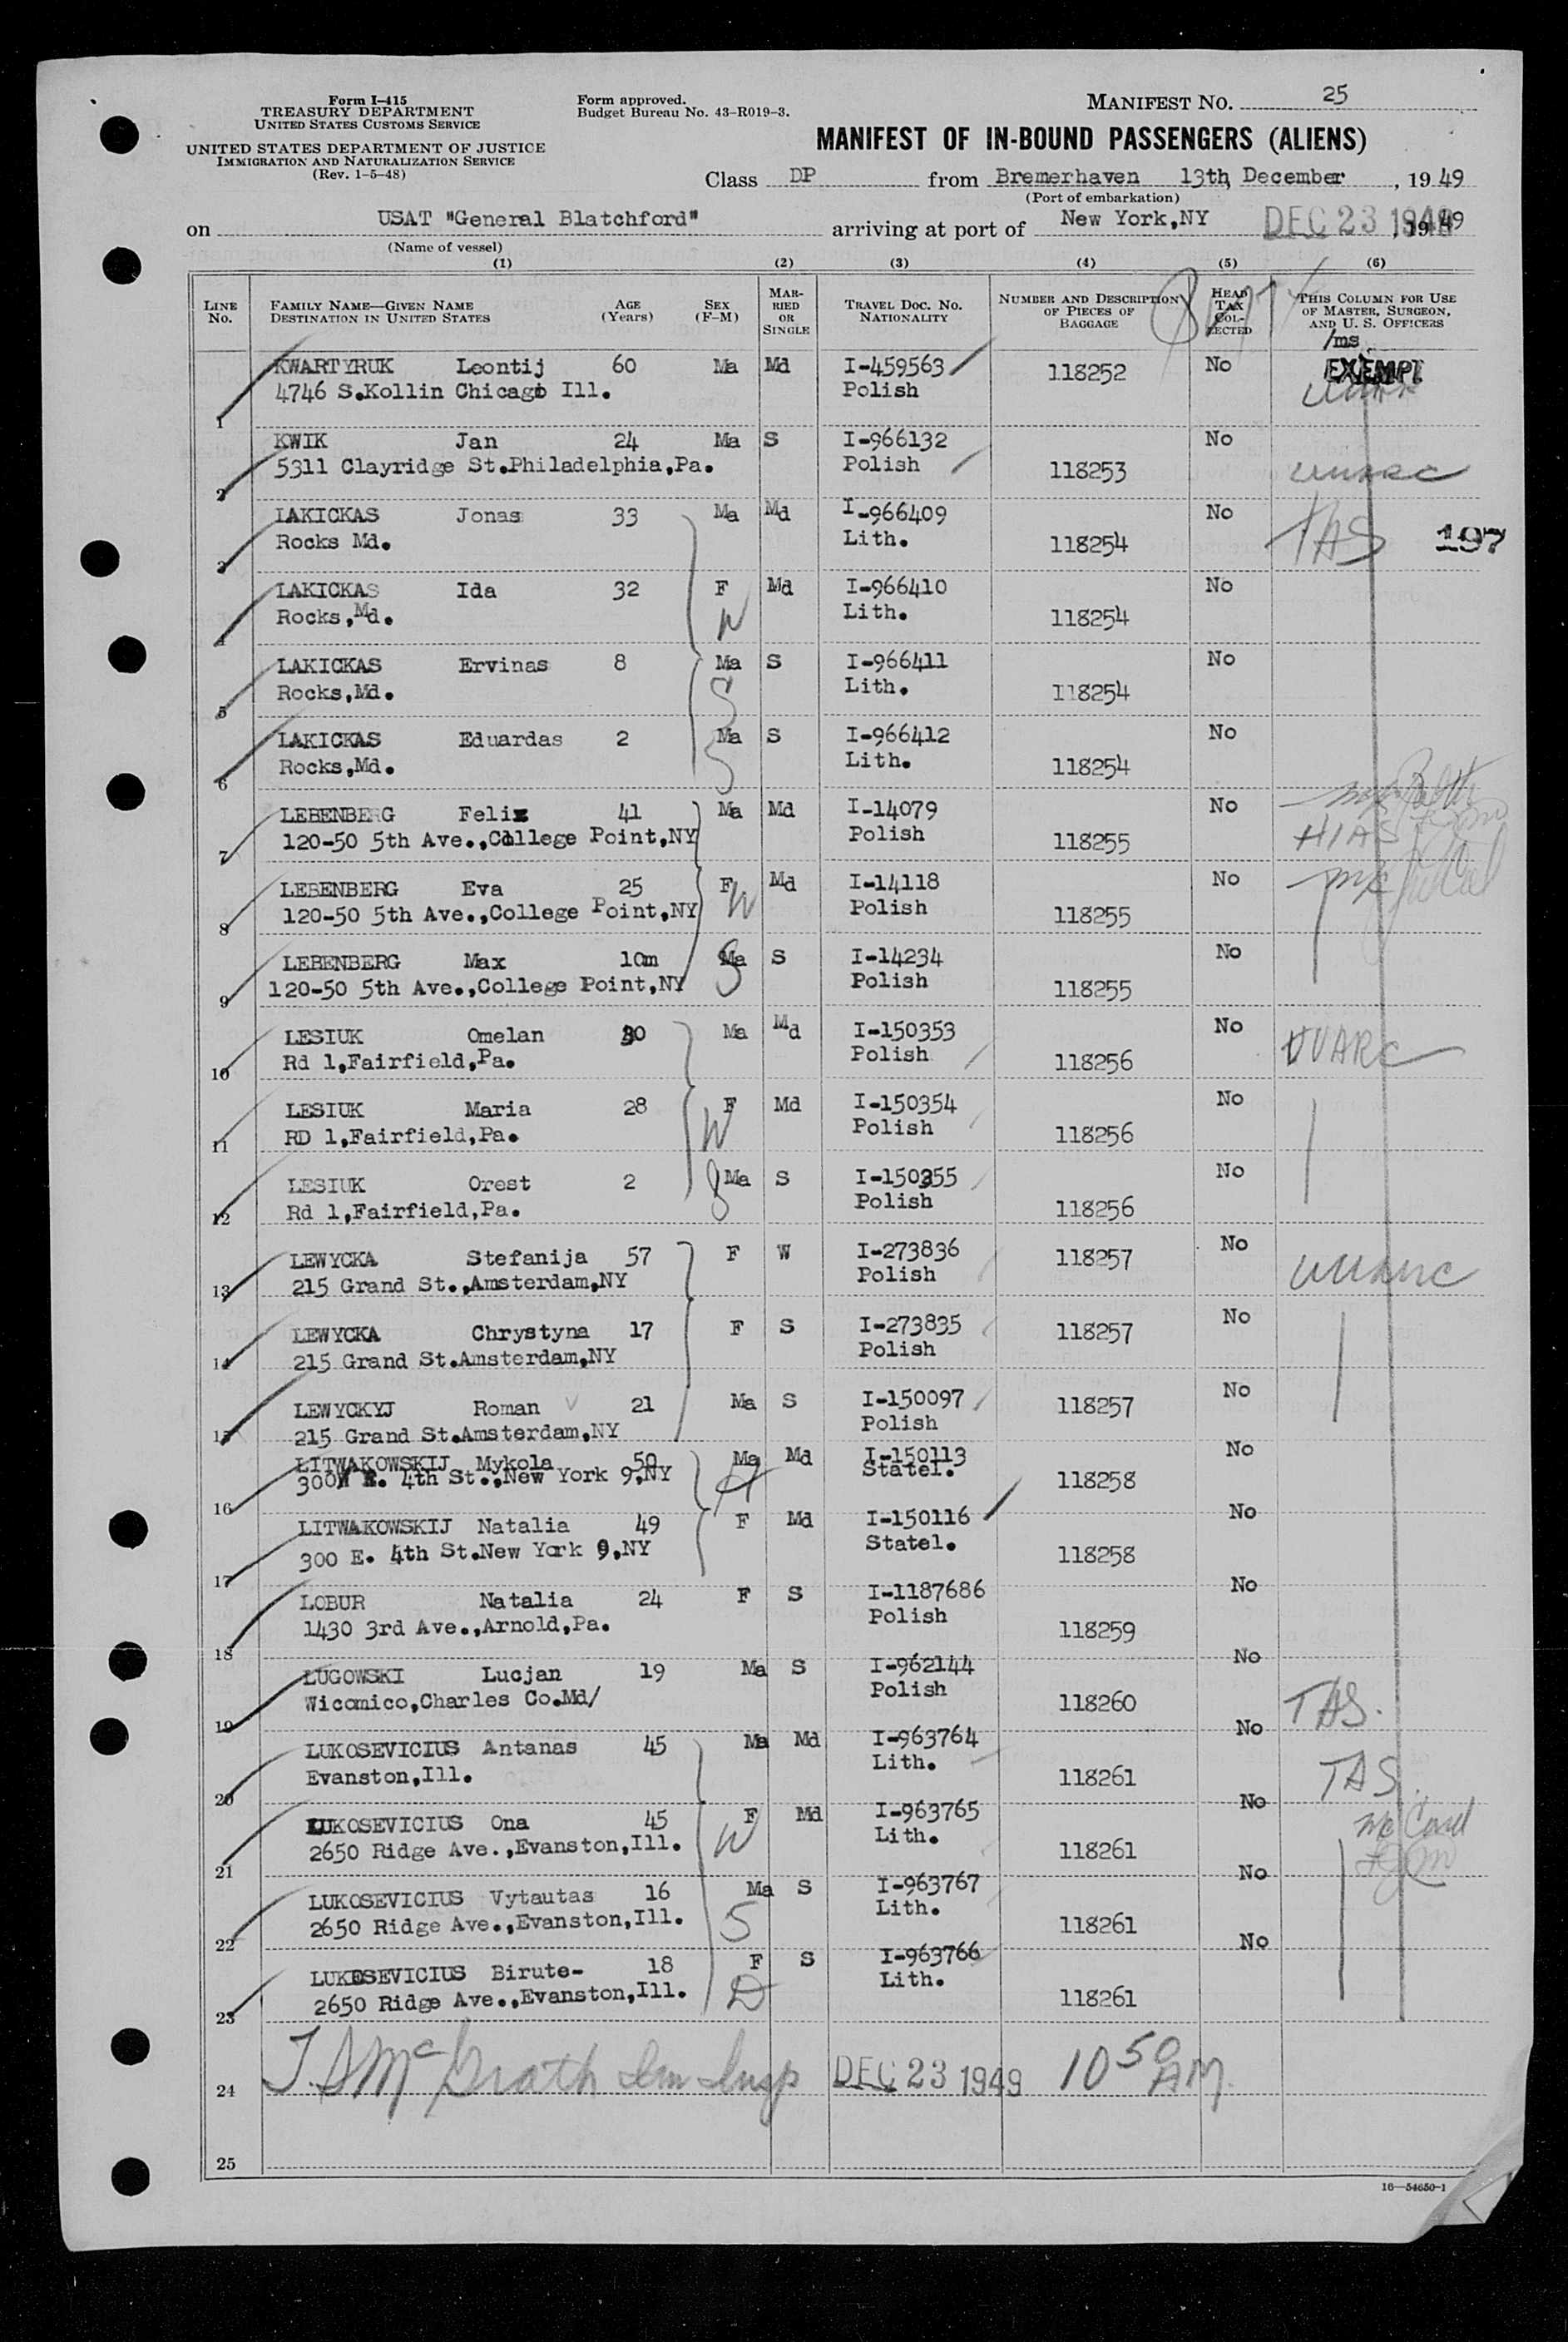 Form I-415
TREASURY DEPARTMENT
UNITED STATES CUSTOMS SERVICE
UNITED STATES DEPARTMENT OF JUSTICE
IMMIGRATION AND NATURALIZATION SERVICE
(Rev. 1-5-48)
Form approved.
Budget Bureau No. 43-R019-3.
MANIFEST NO. 25
MANIFEST OF IN-BOUND PASSENGERS (ALIENS)
Class DP from Bremerhaven 13th December, 1949
(Port of embarkation)
on USAT "General Blatchford" arriving at port of New York,NY DEC 23 1949, 1949
(Name of vessel)
(1) (2) (3) (4) (5) (6)
LINE No. FAMILY NAME—GIVEN NAME DESTINATION IN UNITED STATES AGE (Years) SEX (F-M) MARRIED OR SINGLE TRAVEL DOC. NO. NATIONALITY NUMBER AND DESCRIPTION OF PIECES OF BAGGAGE HEAD TAX COLLECTED THIS COLUMN FOR USE OF MASTER, SURGEON, AND U. S. OFFICERS
/ms
1 KWARTYRUK Leontij 60 Ma Md I-459563 118252 No EXEMPT
4746 S.Kollin Chicago Ill. Polish
2 KWIK Jan 24 Ma S I-966132 118253 No
5311 Clayridge St.Philadelphia,Pa. Polish
3 LAKICKAS Jonas 33 Ma Md I-966409 118254 No TAS 197
Rocks Md. Lith.
4 LAKICKAS Ida 32 F Md I-966410 118254 No
Rocks,Md. W Lith.
5 LAKICKAS Ervinas 8 Ma S I-966411 118254 No
Rocks,Md. S Lith.
6 LAKICKAS Eduardas 2 Ma S I-966412 118254 No
Rocks,Md. S Lith.
7 LEBENBERG Felix 41 Ma Md I-14079 118255 No HIAS
120-50 5th Ave.,College Point,NY Polish
8 LEBENBERG Eva 25 F W Md I-14118 118255 No
120-50 5th Ave.,College Point,NY Polish
9 LEBENBERG Max 10m Ma S S I-14234 118255 No
120-50 5th Ave.,College Point,NY Polish
10 LESIUK Omelan 30 Ma Md I-150353 118256 No UUARC
Rd 1,Fairfield,Pa. Polish
11 LESIUK Maria 28 F Md I-150354 118256 No
RD 1,Fairfield,Pa. W Polish
12 LESIUK Orest 2 S Ma S I-150355 118256 No
Rd 1,Fairfield,Pa. Polish
13 LEWYCKA Stefanija 57 F W I-273836 118257 No
215 Grand St.,Amsterdam,NY Polish
14 LEWYCKA Chrystyna 17 F S I-273835 118257 No
215 Grand St.Amsterdam,NY Polish
15 LEWYCKYJ Roman 21 Ma S I-150097 118257 No
215 Grand St.Amsterdam,NY Polish
16 LITWAKOWSKIJ Mykola 50 Ma Md I-150113 118258 No
300 E. 4th St.,New York 9,NY H Statel.
17 LITWAKOWSKIJ Natalia 49 F Md I-150116 118258 No
300 E. 4th St.New York 9,NY Statel.
18 LOBUR Natalia 24 F S I-1187686 118259 No
1430 3rd Ave.,Arnold,Pa. Polish
19 LUGOWSKI Lucjan 19 Ma S I-962144 118260 No TAS.
Wicomico,Charles Co.Md/ Polish
20 LUKOSEVICIUS Antanas 45 Ma Md I-963764 118261 No TAS.
Evanston,Ill. Lith.
21 LUKOSEVICIUS Ona 45 F Md I-963765 118261 No
2650 Ridge Ave.,Evanston,Ill. W Lith.
22 LUKOSEVICIUS Vytautas 16 Ma S I-963767 118261 No
2650 Ridge Ave.,Evanston,Ill. S Lith.
23 LUKOSEVICIUS Birute- 18 F S I-963766 118261 No
2650 Ridge Ave.,Evanston,Ill. D Lith.
24 T.S McGrath Imm Insp DEC 23 1949 10 50 AM.
25
16—54650-1